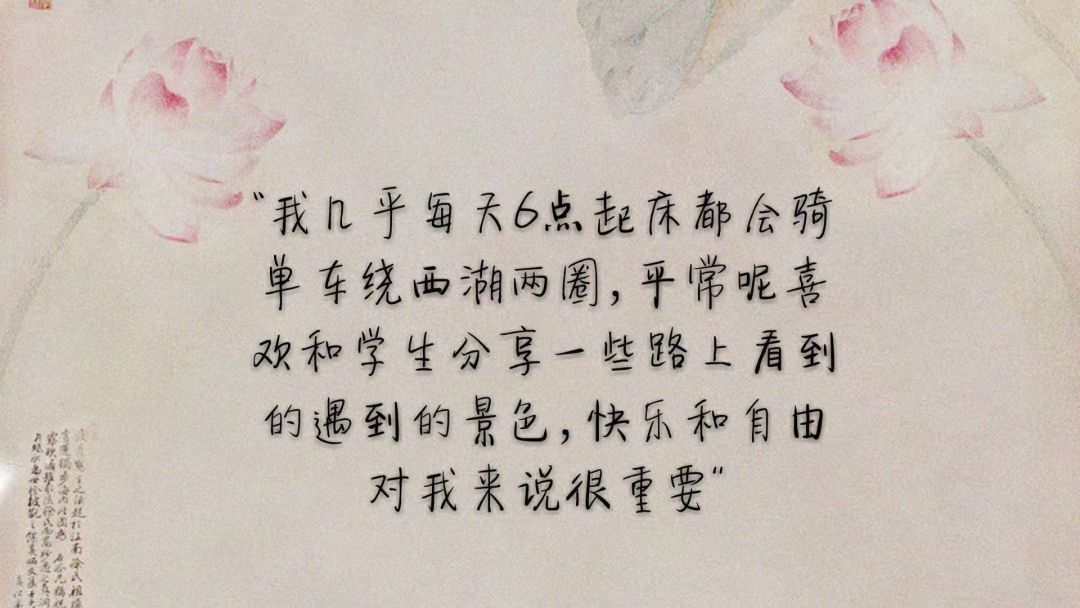 “我几乎每天6点起床都会骑
单车绕西湖两圈,平常呢喜
欢和学生分享一些路上看到
的遇到的景色,快乐和自由
对我来说很重要”